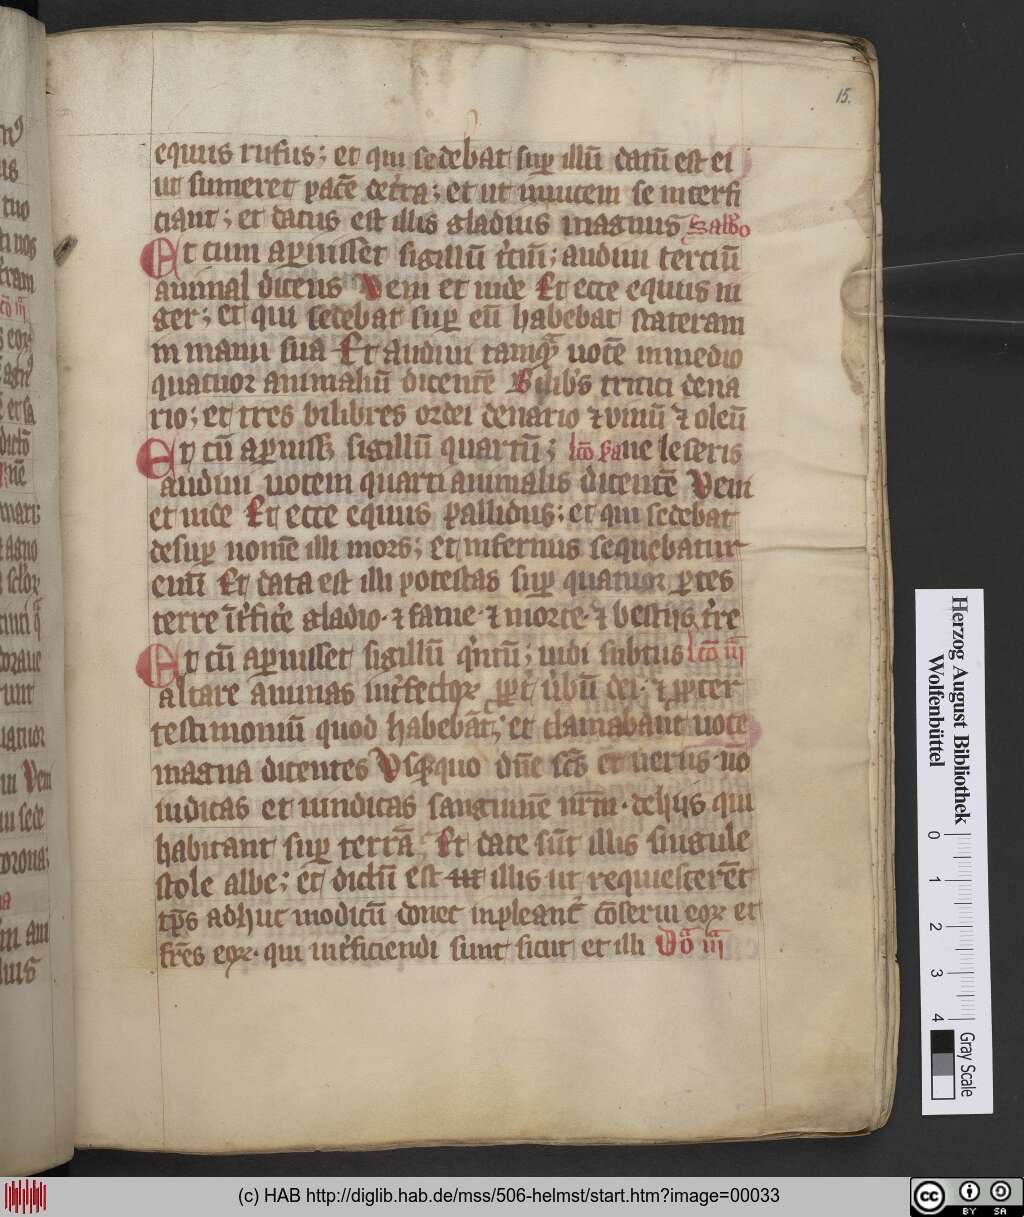 15.
equus rufus; et qui sedebat suꝑ illū datū est ei
ut sumeret pacē de tꝛ̄a; et ut inuicem se interfi
ciant; et datus est illis gladius magnus Sabbo
Et cum aꝑuisset sigillū t̄ciū; audiui terciū
animal dicens Veni et uide Et ecce equus ni
ger; et qui sedebat suꝑ eū habebat stateram
in manu sua Et audiui tamqᷓ uocē in medio
quatuor animaliū dicentē Bilib̄s tritici dena
rio; et tres bilibres ordei denario ⁊ vinū ⁊ oleū
Et cū aꝑuiss; sigillū quartū; ne leseris
audiui uocem quarti animalis dicentē Veni
et uide Et ecce equus pallidus; et qui sedebat
desuꝑ nomē illi mors; et infernus sequebatur
eum Et data est illi potestas suꝑ quatuor ꝑtes
terre īt̄ficē gladio· ⁊ fame· ⁊ morte· ⁊ bestijs t̄re
Et cū aꝑuisset sigillū qͥntū; uidi subtus lc̄o iijᷓ
altare animas int̄fectoꝝ ꝓpt̄ ūbū dei· ⁊ ꝓpter
testimoniū quod habebāt; et clamabant uoce
magna dicentes Vsq̄quo dn̄e sc̄s et uerus· nō
iudicas et uindicas sanguinē nr̄m· de hijs qui
habitant suꝑ terrā Et date sūt illis singule
stole albe; et dictū est illis ut requiescerēt
tp̄s adhuc modicū donec inpleant̄ cōserui eoꝝ et
fr̄es eoꝝ· qui int̄ficiendi sunt sicut et illi Dō iijᷓ
Herzog August Bibliothek
Wolfenbüttel
0 1 2 3 4
Gray Scale
(c) HAB http://diglib.hab.de/mss/506-helmst/start.htm?image=00033
cc BY SA